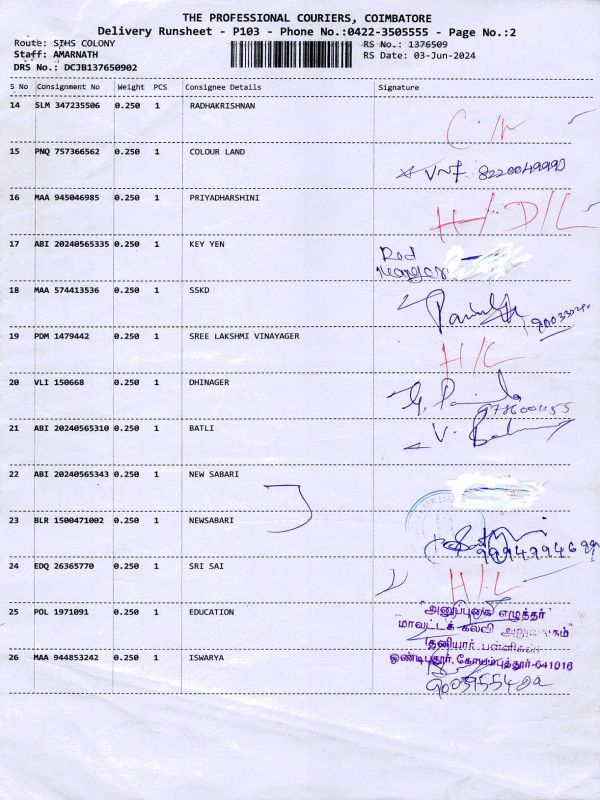 THE PROFESSIONAL COURIERS, COIMBATORE
Delivery Runsheet - P103 - Phone No.:0422-3505555 - Page No.:2
Route: SIHS COLONY RS No.: 1376509
Staff: AMARNATH RS Date: 03-Jun-2024
DRS No.: DCJB137650902
S No Consignment No Weight PCS Consignee Details Signature
14 SLM 347235506 0.250 1 RADHAKRISHNAN
15 PNQ 757366562 0.250 1 COLOUR LAND
16 MAA 945046985 0.250 1 PRIYADHARSHINI H/D/L
17 ABI 20240565335 0.250 1 KEY YEN
18 MAA 574413536 0.250 1 SSKD
19 PDM 1479442 0.250 1 SREE LAKSHMI VINAYAGER H/L
20 VLI 150668 0.250 1 DHINAGER
21 ABI 20240565310 0.250 1 BATLI
22 ABI 20240565343 0.250 1 NEW SABARI
23 BLR 1500471002 0.250 1 NEWSABARI
24 EDQ 26365770 0.250 1 SRI SAI H/L
25 POL 1971091 0.250 1 EDUCATION அனுப்புகை எழுத்தர்
மாவட்டக் கல்வி அலுவலகம்
(தனியார் பள்ளிகள்)
26 MAA 944853242 0.250 1 ISWARYA ஒண்டிபுதூர், கோயம்புத்தூர்-641016